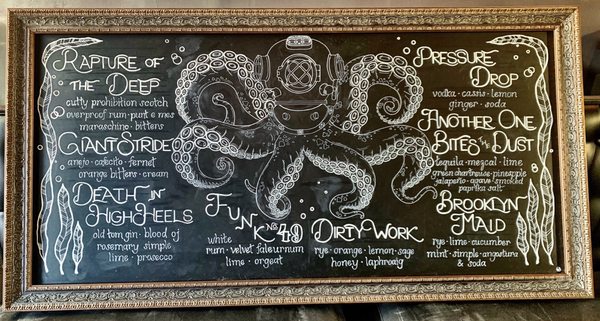 Rapture of
the Deep
cutty prohibition scotch
overproof rum · punt e mes
maraschino · bitters
Giant Stride
anejo · cafecito · fernet
orange bitters · cream
Death in
High Heels
old tom gin · blood of
rosemary simple
lime · prosecco
Funk No. 49
white
rum · velvet falernum
lime · orgeat
Dirty Work
rye · orange · lemon · sage
honey · laphroaig
Pressure
Drop
vodka · cassis · lemon
ginger · soda
Another One
Bites the Dust
tequila · mezcal · lime
green chartreuse · pineapple
jalapeño · agave · smoked
paprika salt
Brooklyn
Maid
rye · lime · cucumber
mint · simple · angostura
& soda